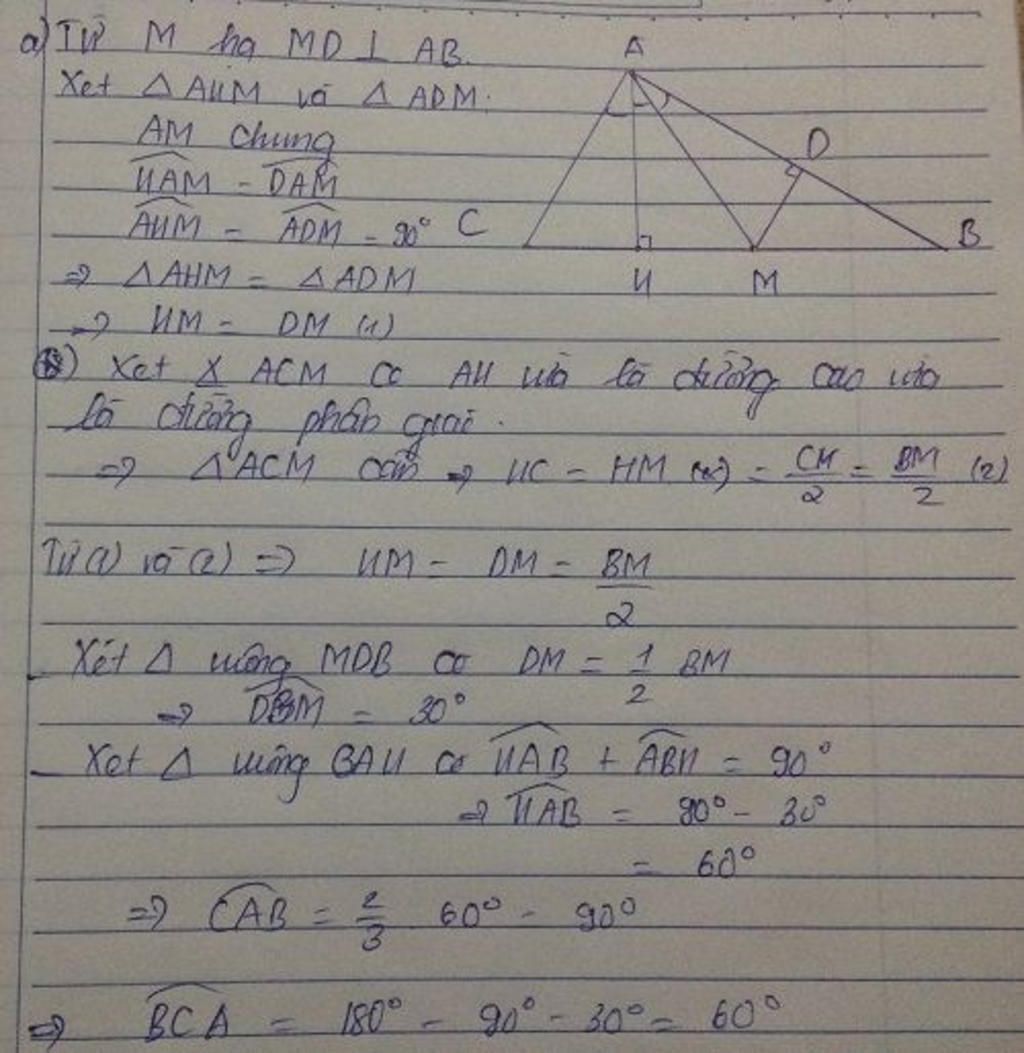 a) Từ M hạ MD ⊥ AB.
Xét △ AHM và △ ADM.
AM chung
HAM = DAM
AHM = ADM = 90°
⇒ △ AHM = △ ADM
⇒ HM = DM (1)
A
D
C
B
H
M
Xét △ ACM có AH vừa là đường cao vừa
là đường phân giác.
⇒ △ ACM cân ⇒ HC = HM = CM/2 = BM/2 (2)
Từ (1) và (2) ⇒ HM = DM = BM/2
Xét △ vuông MDB có DM = 1/2 BM
⇒ DBM = 30°
Xét △ vuông BAH có HAB + ABH = 90°
⇒ HAB = 90° - 30°
= 60°
⇒ CAB = 2/3 60° = 90°
⇒ BCA = 180° - 90° - 30° = 60°